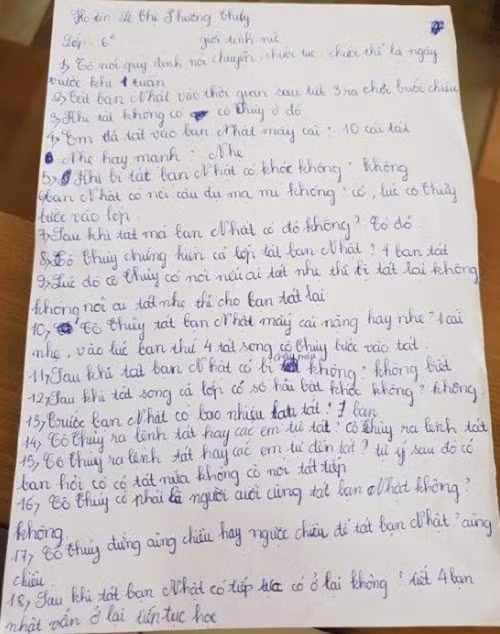 Họ tên: Lê Thị Phương Thuỳ
Lớp: 6⁶ giới tính nữ
1, Cô nói quy định nói chuyện, chửi tục, chửi thề là ngày
trước khi 1 tuần
2, Tát bạn Nhật vào thời gian sau tiết 3 ra chơi buổi chiều
3, Khi tát không có cô Thủy ở đó
4, Em đã tát vào bạn Nhật mấy cái? 10 cái tát
Nhẹ hay mạnh: Nhẹ
5, Khi bị tát bạn Nhật có khóc không? không
6, bạn Nhật có nói câu đu ma mi không? có, lúc cô Thủy
bước vào lớp
7, Sau khi tát má bạn Nhật có đỏ không? Có đỏ
8, Cô Thủy chứng kiến cả lớp tát bạn Nhật? 4 bạn tát
9, Lúc đó cô Thủy có nói nếu ai tát nhẹ thì bị tát lại không
không nói ai tát nhẹ thì cho bạn tát lại
10, Cô Thủy tát bạn Nhật mấy cái nặng hay nhẹ? 1 cái
nhẹ, vào lúc bạn thứ 4 tát song cô Thủy bước vào tát.
11, Sau khi tát bạn Nhật có bị chảy máu không? không biết
12, Sau khi tát song cả lớp có sợ hãi bật khóc không? không.
13, Trước bạn Nhật có bao nhiêu bạn tát? 7 bạn
14, Cô Thủy ra lệnh tát hay các em tự tát? cô Thủy ra lệnh tát
15, Cô Thủy ra lệnh tát hay các em tự đến tát? tự ý sau đó có
bạn hỏi cô có tát nữa không cô nói tát tiếp
16, Cô Thủy có phải là người cuối cùng tát bạn Nhật không?
không.
17, Cô Thủy đứng cùng chiều hay ngược chiều để tát bạn Nhật? cùng
chiều.
18, Sau khi tát bạn Nhật có tiếp tục có ở lại không? tiết 4 bạn
nhật vẫn ở lại tiếp tục học